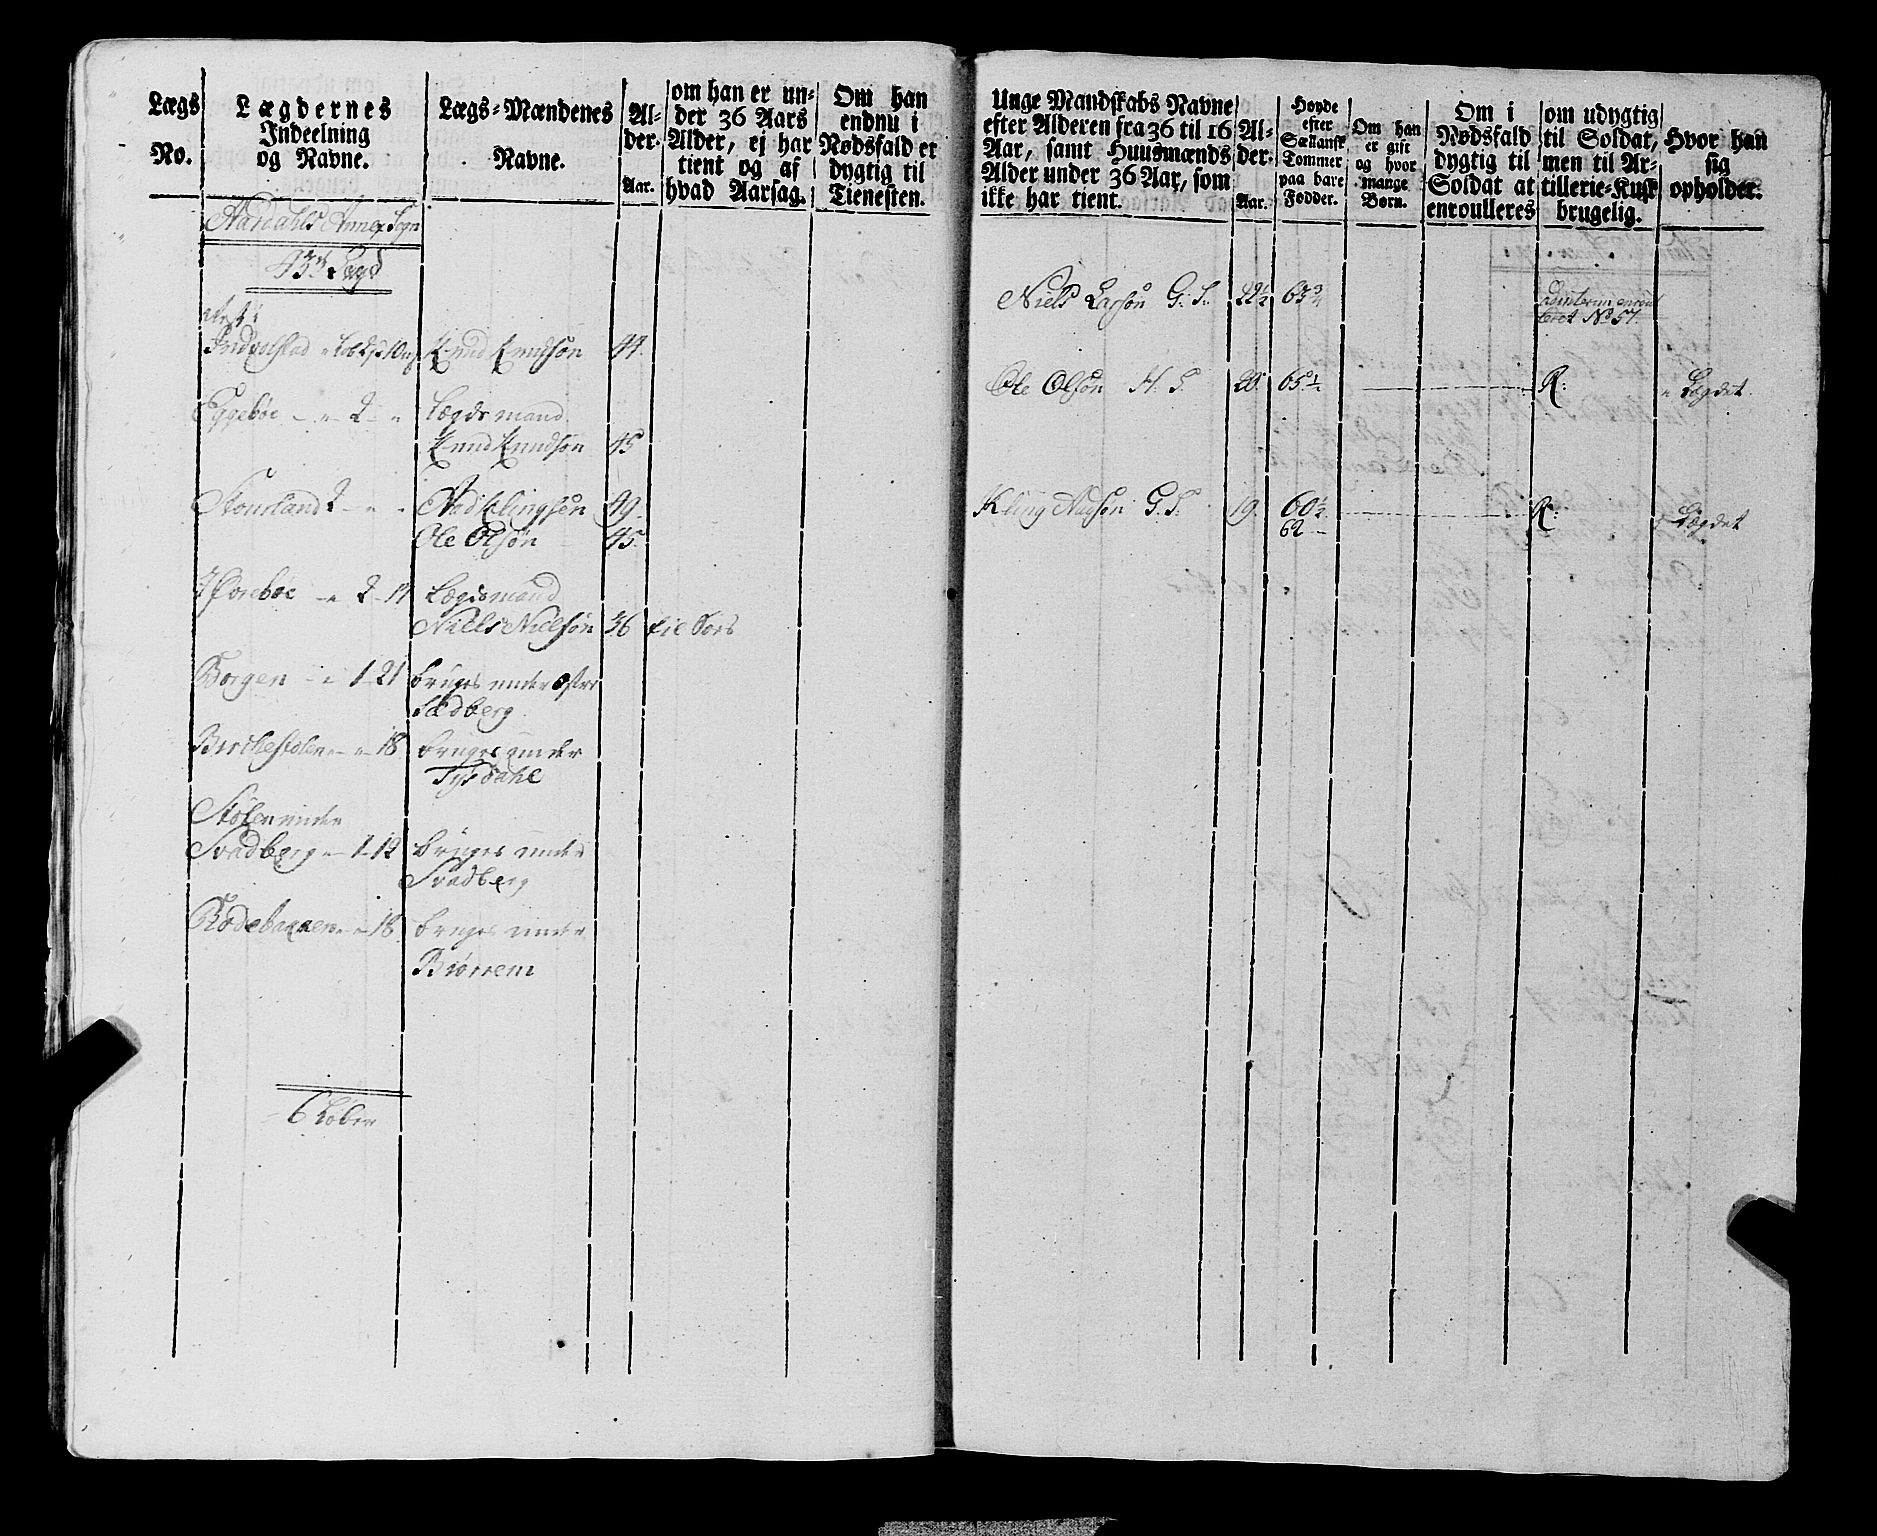 Lægs
No.
Lægdernes
Indeelning
og Navne.
Lægs-Mændenes
Navne.
Al-
der.
Aar.
om han er un-
der 36 Aars
Alder, ej har
tient og af
hvad Aarsag.
Om han
endnu i
Nødsfald er
dygtig til
Tienesten.
Aardahls Annex Sogn
43de Lægd
Knud Knudsøn 44
Eggebøe - " - 2 - " Lægdsmand
Knud Knudsøn 45
Stourland 2 - " - Aad Klingsøn 49
Ole Olsøn 45
2 - 11 Lægdsmand
Niels Nielsøn 36
Borgen - " 1 - 21 bruges under østre
Sædberg
18 bruges under
Tysdahl
Stølen under
Svadberg - 1 - 12 bruges under
Svadberg
18 bruges under
Biørrem
6 Løber
Unge Mandskabs Navne
efter Alderen fra 36 til 16
Aar, samt Huusmænds
Alder under 36 Aar, som
ikke har tient.
Al-
der.
Aar.
Høyde
efter
Sællansk
Tommer
paa bare
Fødder.
Om han
er gift
og hvor
mange
Børn.
Om i
Nødsfald
dygtig til
Soldat at
enroulleres
om udygtig
til Soldat,
men til Ar-
tillerie-Kusk
brugelig.
Hvor han
sig
opholder.
Niels Larsøn G: S: 22½ 63¾
No 57.
Ole Olsøn H. S. 20. 65½ R: " Lægdet
Kling Aadsøn G. S. 19. 60½ R: Lægdet
62